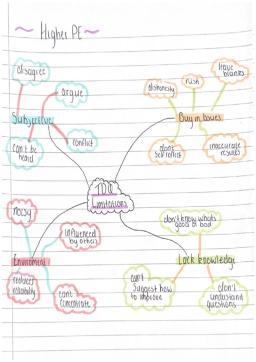 ~ Higher PE ~
disagree
argue
Subjective
can't be
heard
conflict
dishonesty
rush
leave
blanks
Buy in issues
don't
self reflect
inaccurate
results
Limitations
noisy
influenced
by others
Environment
reduces
reliability
can't
concentrate
don't know whats
good or bad
Lack knowledge
can't
suggest how
to improve
don't
understand
questions